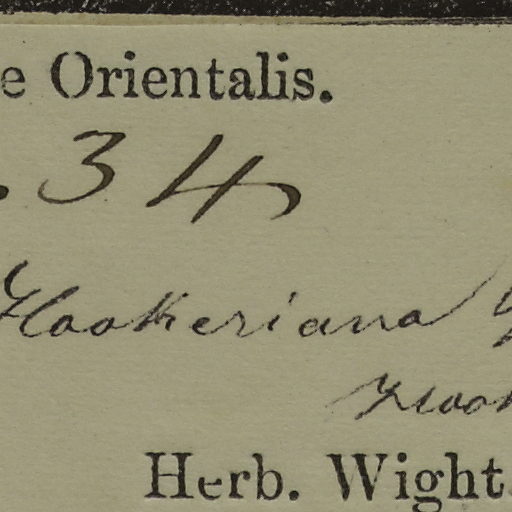 e Orientalis.
. 34
Hookeriana
Hook
Herb. Wight.